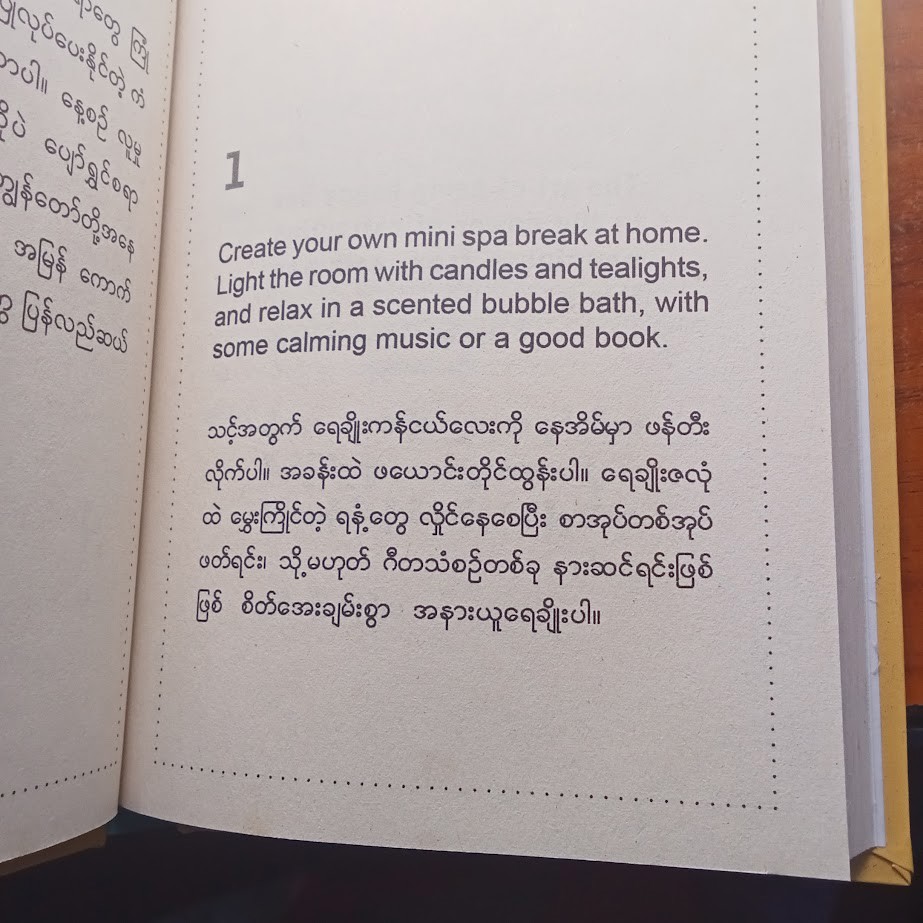 ပြုလုပ်ပေးနိုင်တဲ့ ကံ
နေ့စဉ် လူမှု
ပျော်ရွှင်စရာ
ကျွန်တော်တို့အနေ
အမြန် ကောက်
ပြန်လည်ဆယ်
1
Create your own mini spa break at home.
Light the room with candles and tealights,
and relax in a scented bubble bath, with
some calming music or a good book.
သင့်အတွက် ရေချိုးကန်ငယ်လေးကို နေအိမ်မှာ ဖန်တီး
လိုက်ပါ။ အခန်းထဲ ဖယောင်းတိုင်ထွန်းပါ။ ရေချိုးဇလုံ
ထဲ မွှေးကြိုင်တဲ့ ရနံ့တွေ လှိုင်နေစေပြီး စာအုပ်တစ်အုပ်
ဖတ်ရင်း၊ သို့မဟုတ် ဂီတသံစဉ်တစ်ခု နားဆင်ရင်းဖြစ်
ဖြစ် စိတ်အေးချမ်းစွာ အနားယူရေချိုးပါ။